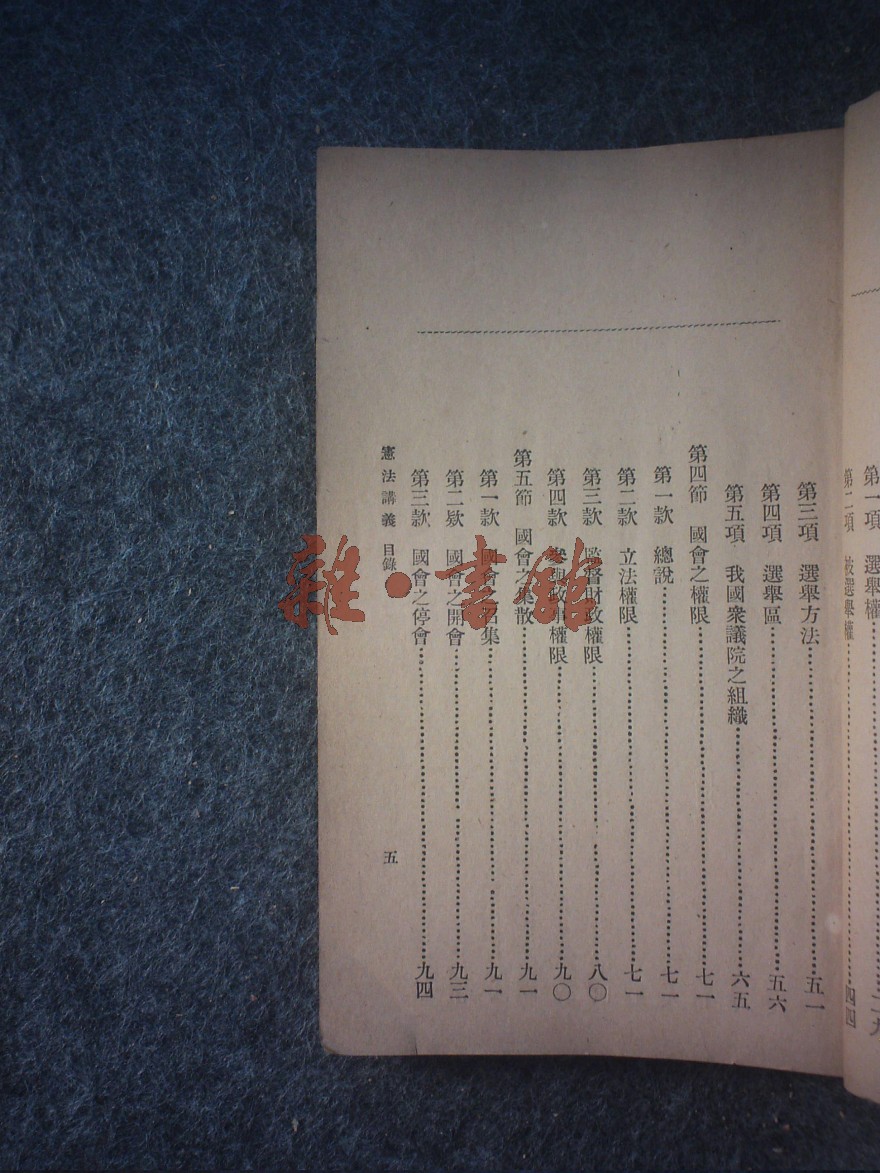 第一項 選舉權
第二項 被選舉權 四四
第三項 選舉方法 五一
第四項 選舉區 五六
第五項 我國衆議院之組織 六五
第四節 國會之權限 七一
第一款 總說 七一
第二款 立法權限 七一
第三款 監督財政權限 八〇
第四款 政權限 九〇
第五節 國會之集散 九一
第一款 國會之召集 九一
第二欵 國會之開會 九三
第三款 國會之停會 九四
憲法講義 目錄
五
雜·書館